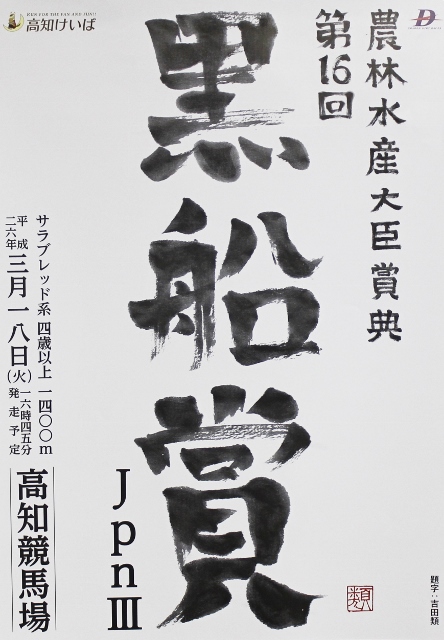 農林水産大臣賞典
第16回
黒船賞
JpnⅢ
サラブレッド系 四歳以上 一四〇〇m
平成二六年三月一八日(火)一六時四五分発走予定
高知競馬場
高知けいば
RUN FOR THE FAN AND FUN!!
題字:吉田類
類